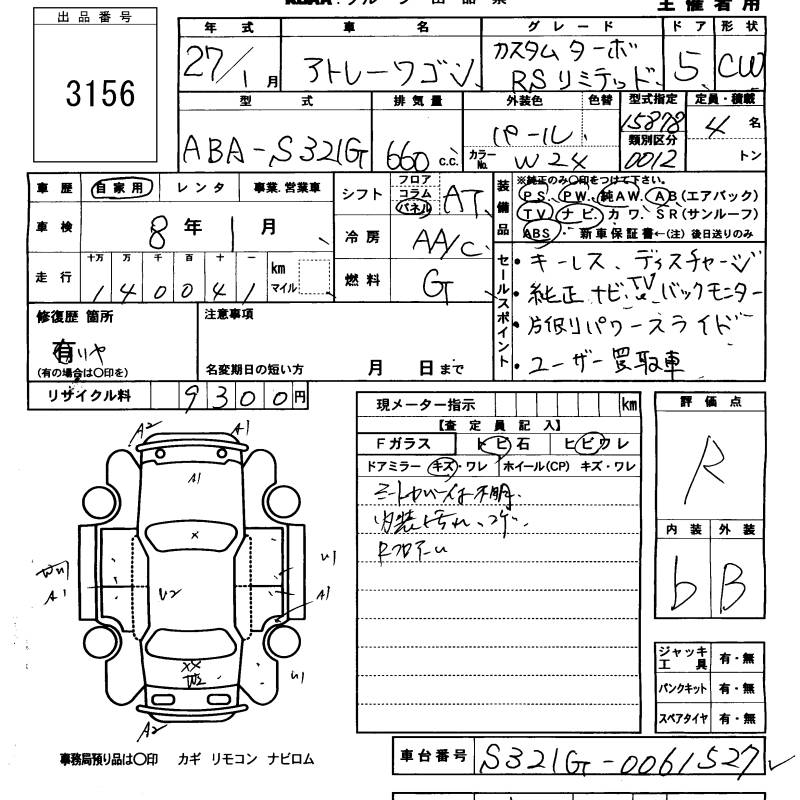 出品番号
3156
主催者用
年式 車名 グレード ドア 形状
27/1月 アトレーワゴン カスタムターボ RSリミテッド 5 CW
型式 排気量 外装色 色替 型式指定 定員・積載
ABA-S321G 660 c.c. パール 15878 4名
カラーNo. W24 類別区分 0012 トン
車歴 自家用 レンタ 事業.営業車
車検 8年1月
走行 十万 万 千 百 十 一 km マイル
140041
シフト フロア コラム パネル AT
冷房 AA/C
燃料 G
装備品
※純正のみ〇印をつけて下さい。
PS. PW. 純AW. AB(エアバック)
TV ナビ. カワ. SR(サンルーフ)
ABS ・ 新車保証書←(注) 後日送りのみ
セールスポイント
・キーレス、ディスチャージ
・純正ナビ、TV、バックモニター
・片側パワースライド
・ユーザー買取車
修復歴 箇所
有
(有の場合は〇印を)
注意事項
名変期日の短い方 月 日まで
リサイクル料 9300円
現メーター指示 km
【査定員記入】
Fガラス トビ石 ヒビワレ
ドアミラー キズ・ワレ ホイール(CP) キズ・ワレ
シートカバー下は不明.
内装ヨゴレ、コゲ.
評価点
R
内装 外装
b B
A2 A1
A1
X
W1 U1
A1 U2 A1
XX U1
W2
A2
ジャッキ工具 有・無
パンクキット 有・無
スペアタイヤ 有・無
事務局預り品は〇印 カギ リモコン ナビロム
車台番号 S321G-0061527